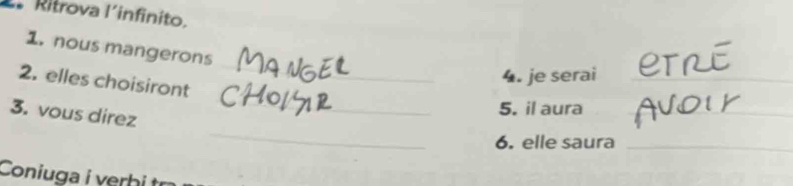 2. Ritrova l'infinito.
1. nous mangerons MANGER
2. elles choisiront CHOISIR
3. vous direz
4. je serai ETRE
5. il aura AVOIR
6. elle saura
Coniuga i verbi